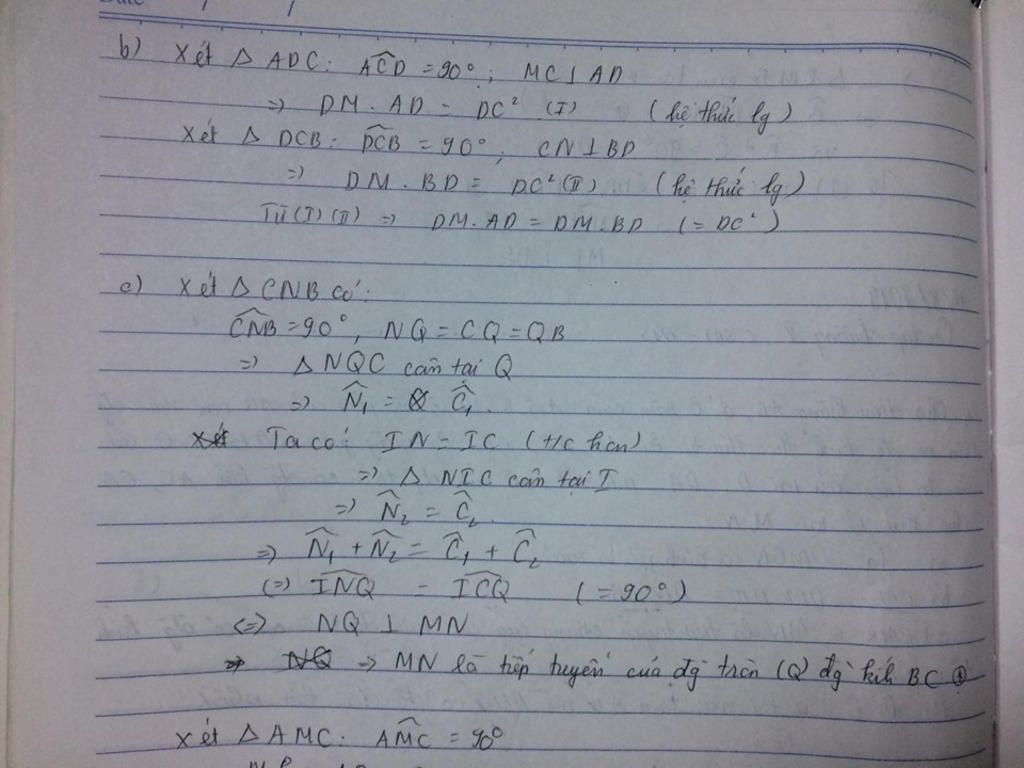 b) Xét △ ADC: ACD = 90°; MC ⊥ AD
=> DM . AD = DC² (I) (hệ thức lg)
Xét △ DCB: DCB = 90°; CN ⊥ BD
=> DM . BD = DC² (II) (hệ thức lg)
Từ (I) (II) => DM.AD = DM.BD (= DC²)
c) Xét △ CNB có:
CNB = 90°, NQ = CQ = QB
=> △ NQC cân tại Q
=> N₁ = C₁
Ta có: IN = IC (t/c hcn)
=> △ NIC cân tại I
=> N₂ = C₂
=> N₁ + N₂ = C₁ + C₂
(=) INQ = ICQ (= 90°)
<=> NQ ⊥ MN
=> MN là tiếp tuyến của đg tròn (Q) đg kính BC
Xét △ AMC: AMC = 90°